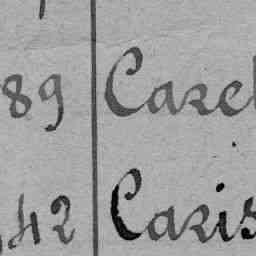 89 Carel
42 Caris